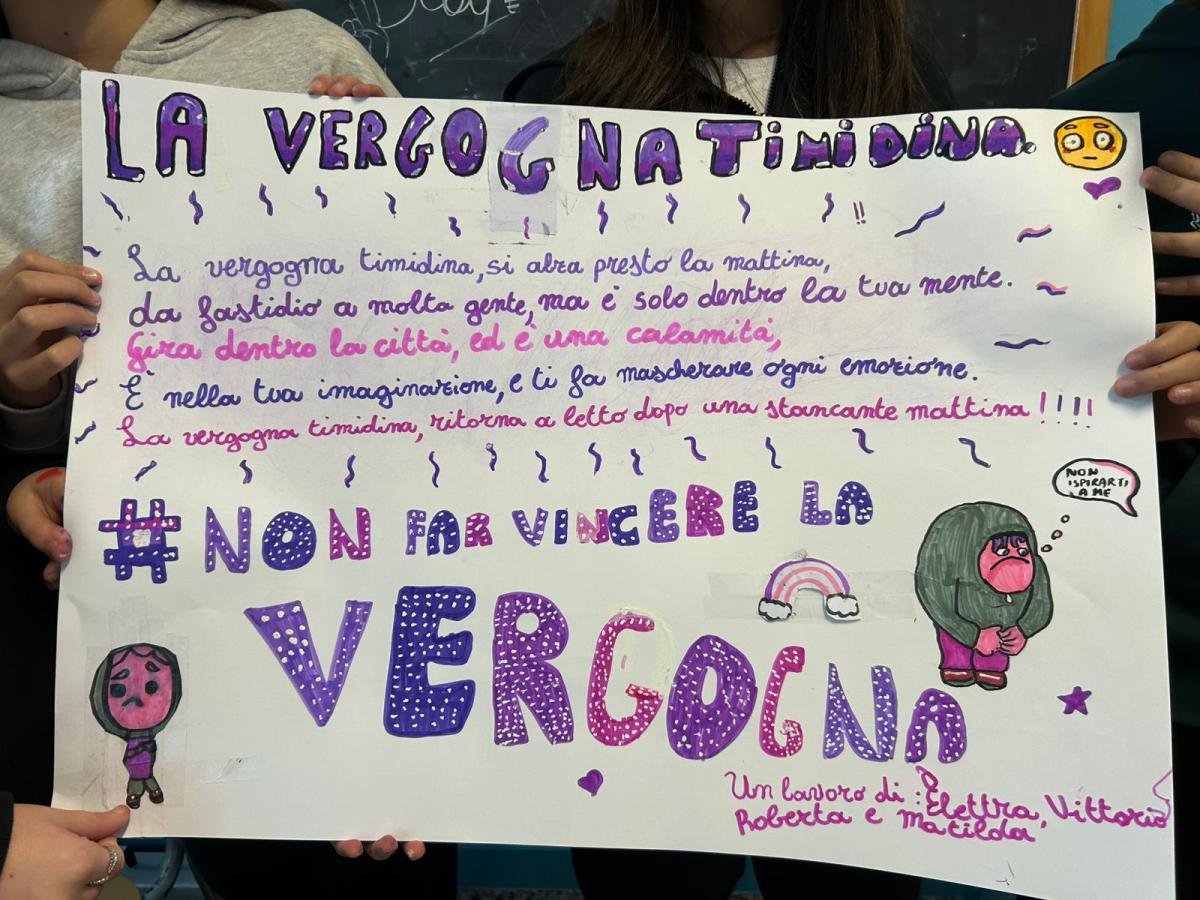 LA VERGOGNA TIMIDINA.
!!
La vergogna timidina, si alza presto la mattina,
da fastidio a molta gente, ma è solo dentro la tua mente.
Gira dentro la città, ed è una calamità,
È nella tua imaginazione, e ti fa mascherare ogni emozione.
La vergogna timidina, ritorna a letto dopo una stancante mattina !!!!
NON
ISPIRARTI
A ME
# NON FAR VINCERE LA
VERGOGNA
Un lavoro di: Elettra, Vittorio
Roberta e Matilda